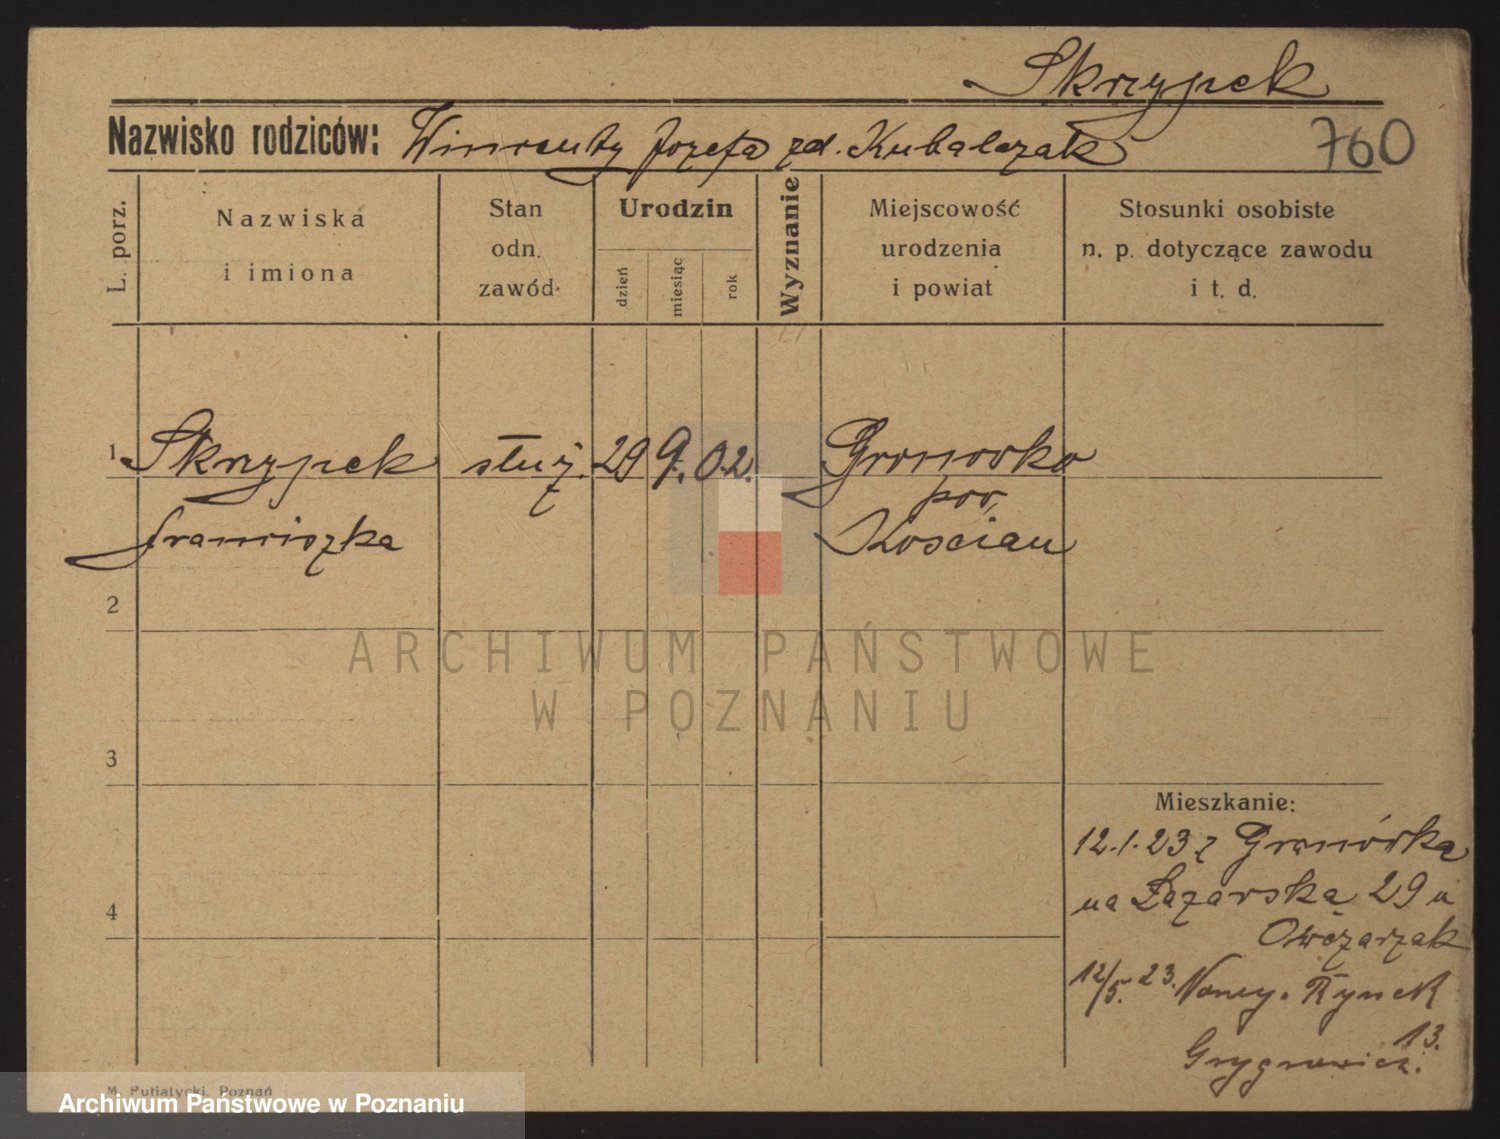 Skrzypek
Nazwisko rodziców: Wincenty Józefa zd. Kubalczak
760
L. porz.
Nazwiska
i imiona
Stan
odn.
zawód
Urodzin
dzień
miesiąc
rok
Wyznanie
Miejscowość
urodzenia
i powiat
Stosunki osobiste
n. p. dotyczące zawodu
i t. d.
1 Skrzypek służ. 29 9. 02. Gronowko
pow.
Franciszka Kościan
2
3
Mieszkanie:
12.1.23 z Gronówka
na Łazarska 29 u
4
Owczarzak
12/5. 23. Nowy. Rynek
13.
M. Putiatycki, Poznań
ARCHIWUM PAŃSTWOWE
W POZNANIU
Archiwum Państwowe w Poznaniu